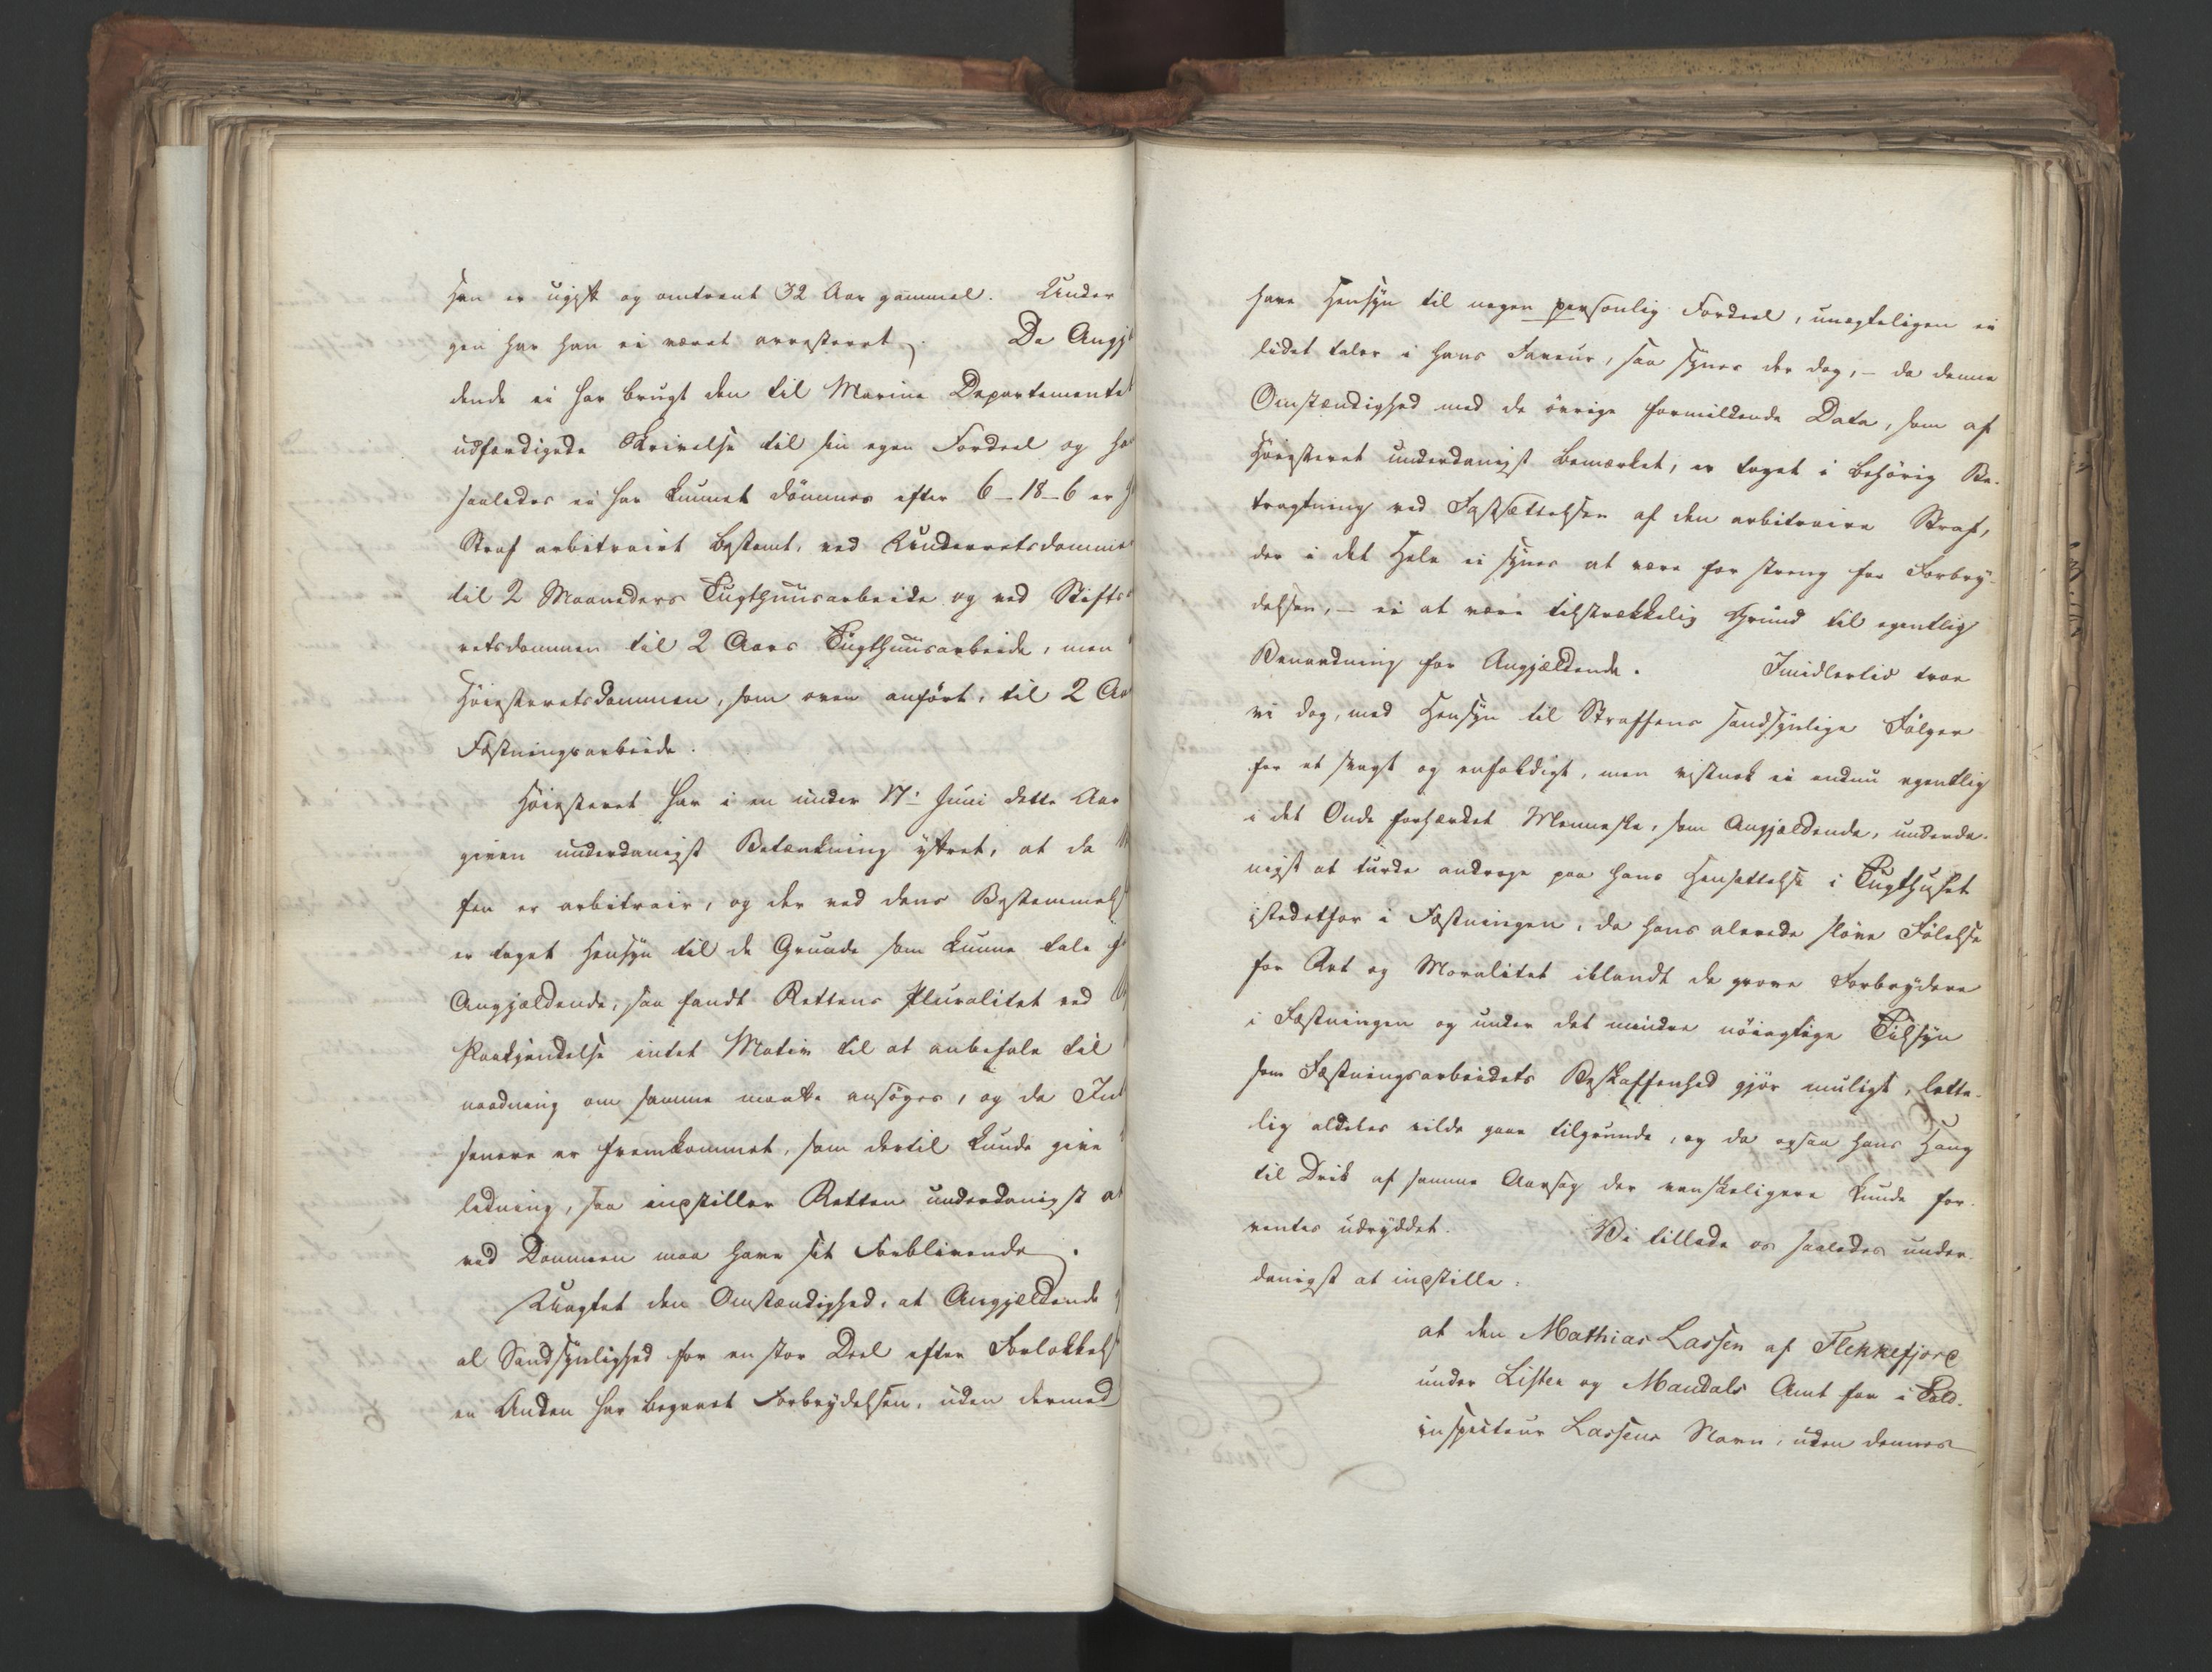 han er ugift og omtrent 32 Aar gammel. Under
gen har han ei været arresteret). Da Angj
dende ei har brugt den til Marine Departementet
udfærdigede Skrivelse til sin egen Fordeel og ha
saaledes ei har kunnet dömmes efter 6-18-6 er h
Straf arbitrairt bestemt, ved Underretsdommen
til 2 Maaneders Tugthuusarbeide og ved Stifts
retsdommen til 2 Aars Tugthuusarbeide, men
Höiesteretsdommen, som oven anfört, til 2 Aa
Fæstningsarbeide.
Höiesteret har i en under 17: Juni dette Aar
given underdanigst Betænkning yttret, at da
fen er arbitrair, og der ved dens Bestemmels
er taget Hensyn til de Grunde som kunne tale f
Angjældende, saa fandt Rettens Pluralitet ved
Paakjendelse intet Motiv til at anbefale til
naadning om samme maatte ansöges, og da In
senere er fremkommet, som dertil kunde give
ledning, saa indstiller Retten underdanigst at
ved Dommen maa have sit Forblivende.
Uagtet den Omstændighed, at Angjældende
al Sandsynlighed for en stor Deel efter Forlokkels
en Anden har begaaet Forbrydelsen, uden dermed
have Hensyn til nogen personlig Fordeel, unægteligen ei
lidet taler i hans Faveur, saa synes der dog, – da denne
Omstændighed med de övrige formildende Data, som af
Höiesteret underdanigst bemærket, er taget i behörig Be-
tragtning ved Fastsættelsen af den arbitraire Straf,
der i det Hele ei synes at være for streng for Forbry-
delsen, – ei at være tilstrækkelig Grund til egentlig
Benaadning for Angjældende. Imidlertid troe
vi dog, med Hensyn til Straffens sandsynlige Fölger
for et svagt og enfoldigt, men vistnok ei endnu egentlig
i det Onde forhærdet Menneske, som Angjældende, underda-
nigst at turde andrage paa hans Hensættelse i Tugthuset
istedetfor i Fæstningen, da hans alerede slöve Fölelse
for Ret og Moralitet iblandt de grove Forbrydere
i Fæstningen og under det mindre nöiagtige Tilsyn
som Fæstningsarbeidets Beskaffenhed gjör muligt, lette-
lig aldeles vilde gaae tilgrunde, og da ogsaa hans Hang
til Drik af samme Aarsag der vanskeligere kunde for-
ventes udryddet. Vi tillade os saaledes under-
danigst at indstille:
at den Mathias Lassen af Flekkefjord
under Lister og Mandals Amt for i Told-
inspecteur Lassens Navn, uden dennes